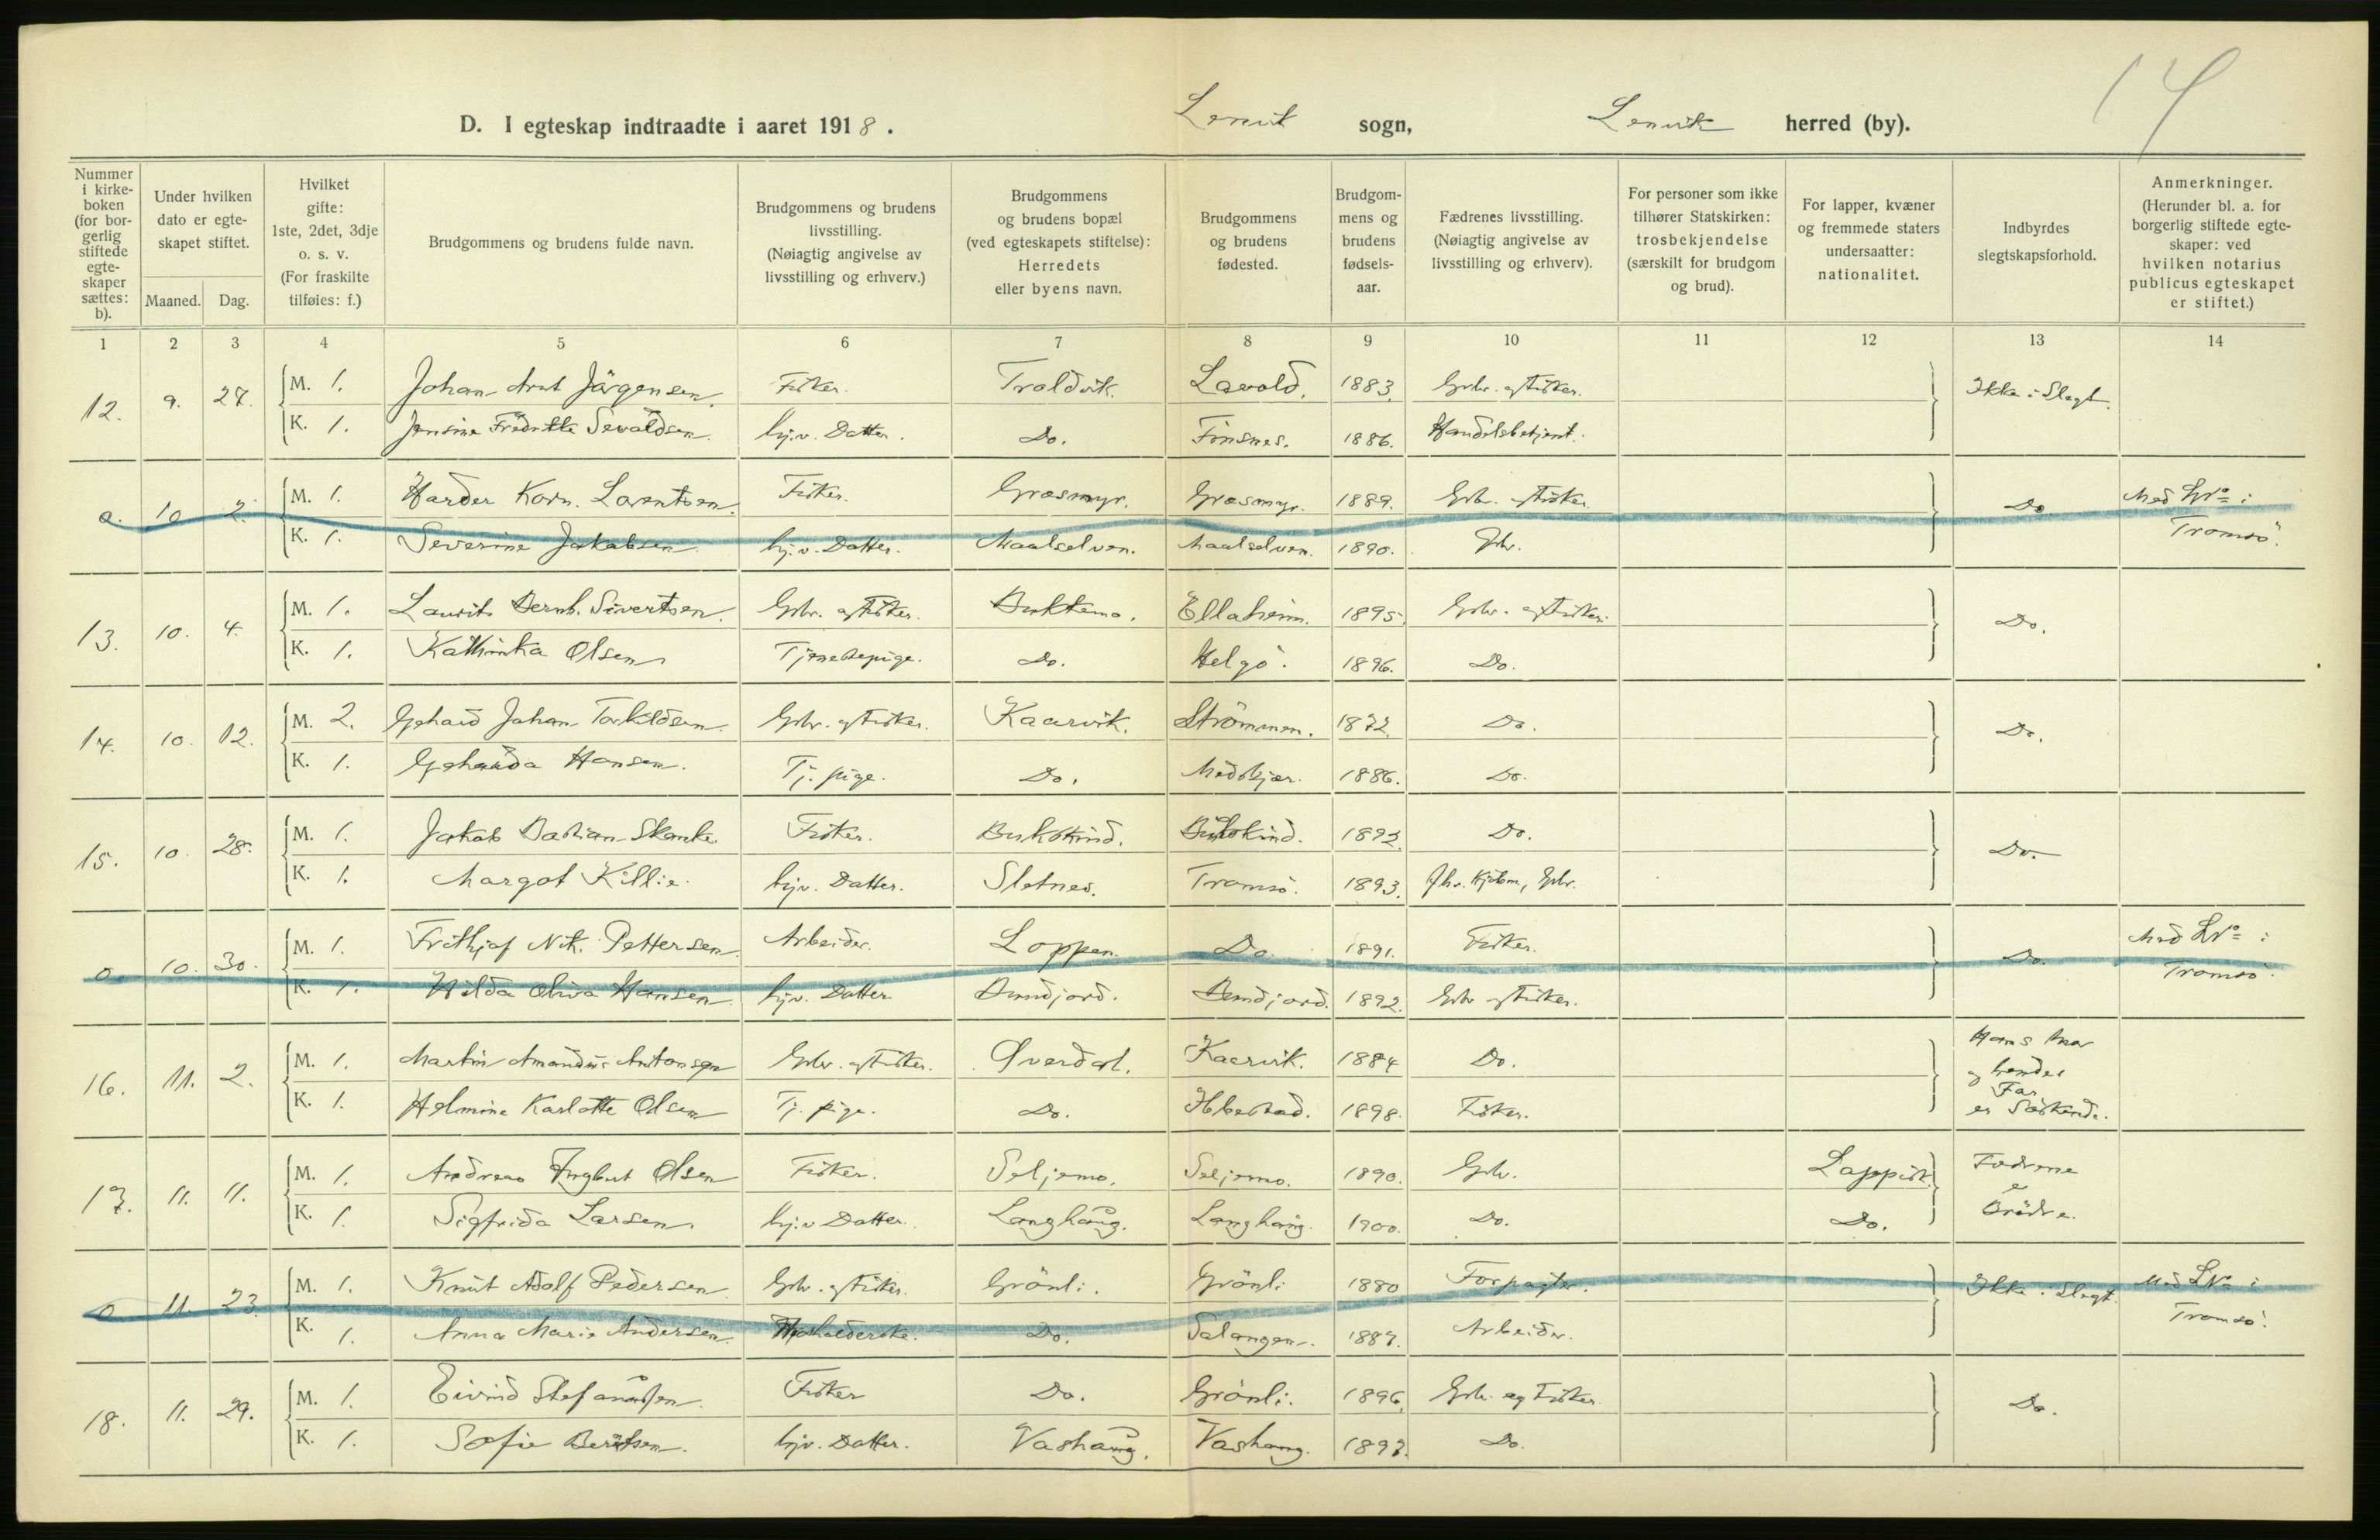 14
D. I egteskap indtraadte i aaret 1918. Lenvik sogn, Lenvik herred (by).
Nummer i kirke-boken (for bor-gerlig stiftede egte-skaper sættes: b).
Under hvilken dato er egte-skapet stiftet.
Maaned. Dag.
Hvilket gifte: 1ste, 2det, 3dje o. s. v. (For fraskilte tilføies: f.)
Brudgommens og brudens fulde navn.
Brudgommens og brudens livsstilling. (Nøiagtig angivelse av livsstilling og erhverv.)
Brudgommens og brudens bopæl (ved egteskapets stiftelse): Herredets eller byens navn.
Brudgommens og brudens fødested.
Brudgom-mens og brudens fødsels-aar.
Fædrenes livsstilling. (Nøiagtig angivelse av livsstilling og erhverv).
For personer som ikke tilhører Statskirken: trosbekjendelse (særskilt for brudgom og brud).
For lapper, kvæner og fremmede staters undersaatter: nationalitet.
Indbyrdes slegtskapsforhold.
Anmerkninger. (Herunder bl. a. for borgerlig stiftede egte-skaper: ved hvilken notarius publicus egteskapet er stiftet.)
1 2 3 4 5 6 7 8 9 10 11 12 13 14
12. 9. 27. M. 1. Johan Arnt Jörgensen. Fisker. Troldvik. Lavold. 1883. Gbr. og Fisker. Ikke i Slegt.
K. 1. Jensine Fredrikke Sevaldsen. hj.v. Datter. Do. Finsnes. 1886. Handelsbetjent.
o. 10 2. M. 1. Harder Korn. Lorentsen. Fisker. Grasmyr. Grasmyr. 1889. Gbr. og Fisker. Do. Med Lv= i
K. 1. Severine Jakobsen hj.v. Datter. Maalselven. Maalselven. 1890. Gbr. Tromsö.
13. 10. 4. M. 1. Laurits Bernh. Sivertsen. Gbr. og Fisker. Buktemo. Ellaheim. 1895. Gbr. og Fisker. Do.
K. 1. Kathinka Olsen Tjenestepige. Do. Helgö. 1896. Do.
14. 10. 12. M. 2. Gehard Johan Torkildsen. Gbr. og Fisker. Kaarvik. Strömmen. 1872. Do. Do.
K. 1. Geharda Hansen. Tj. pige. Do. Medskjær. 1886. Do.
15. 10. 28. M. 1. Jakob Bastian Skanke. Fisker. Bukskind. Bukskind. 1892. Do. Do.
K. 1. Margot Killie. hjv. Datter. Sletnes. Tromsö. 1893. Gbr.
o 10. 30. M. 1. Frithjof Nik. Pettersen. Arbeider. Loppen. Do. 1891. Fisker. Do. Med Lv= i
K. 1. Hilda Oliva Hansen. hjv. Datter Bondjord. Bondjord. 1892. Gbr og Fisker. Tromsö.
16. 11. 2. M. 1. Martin Amandus Antonsen Gbr. og Fisker. Överdal. Kaarvik. 1884 Do. Hans Mor og hendes Far er Söskende.
K. 1. Helmine Karlotte Olsen Tj. pige. Do. Ibbestad. 1898. Fisker.
17. 11. 11. M. 1. Andreas Ingbert Olsen Fisker. Seljemo. Seljemo. 1890. Gbr. Lappisk Fædrene er Brödre.
K. 1. Sigfrida Larsen. hj.v Datter. Langhaug. Langhaug. 1900. Do. Do.
o 11. 23 M. 1. Knut Adolf Pedersen Gbr. og Fisker. Grönli. Grönli 1880 Forpagter. Ikke i Slegt. Med Lv= i
K. 1. Anna Marie Andersen. Husholderske. Do. Salangen. 1887. Arbeider. Tromsö.
18. 11. 29. M. 1. Eivind Stefanussen. Fisker Do. Grönli. 1896. Gbr. og Fisker. Do.
K. 1. Sofie Berntsen. hjv. Datter. Vashaug. Vashaug. 1897. Do.